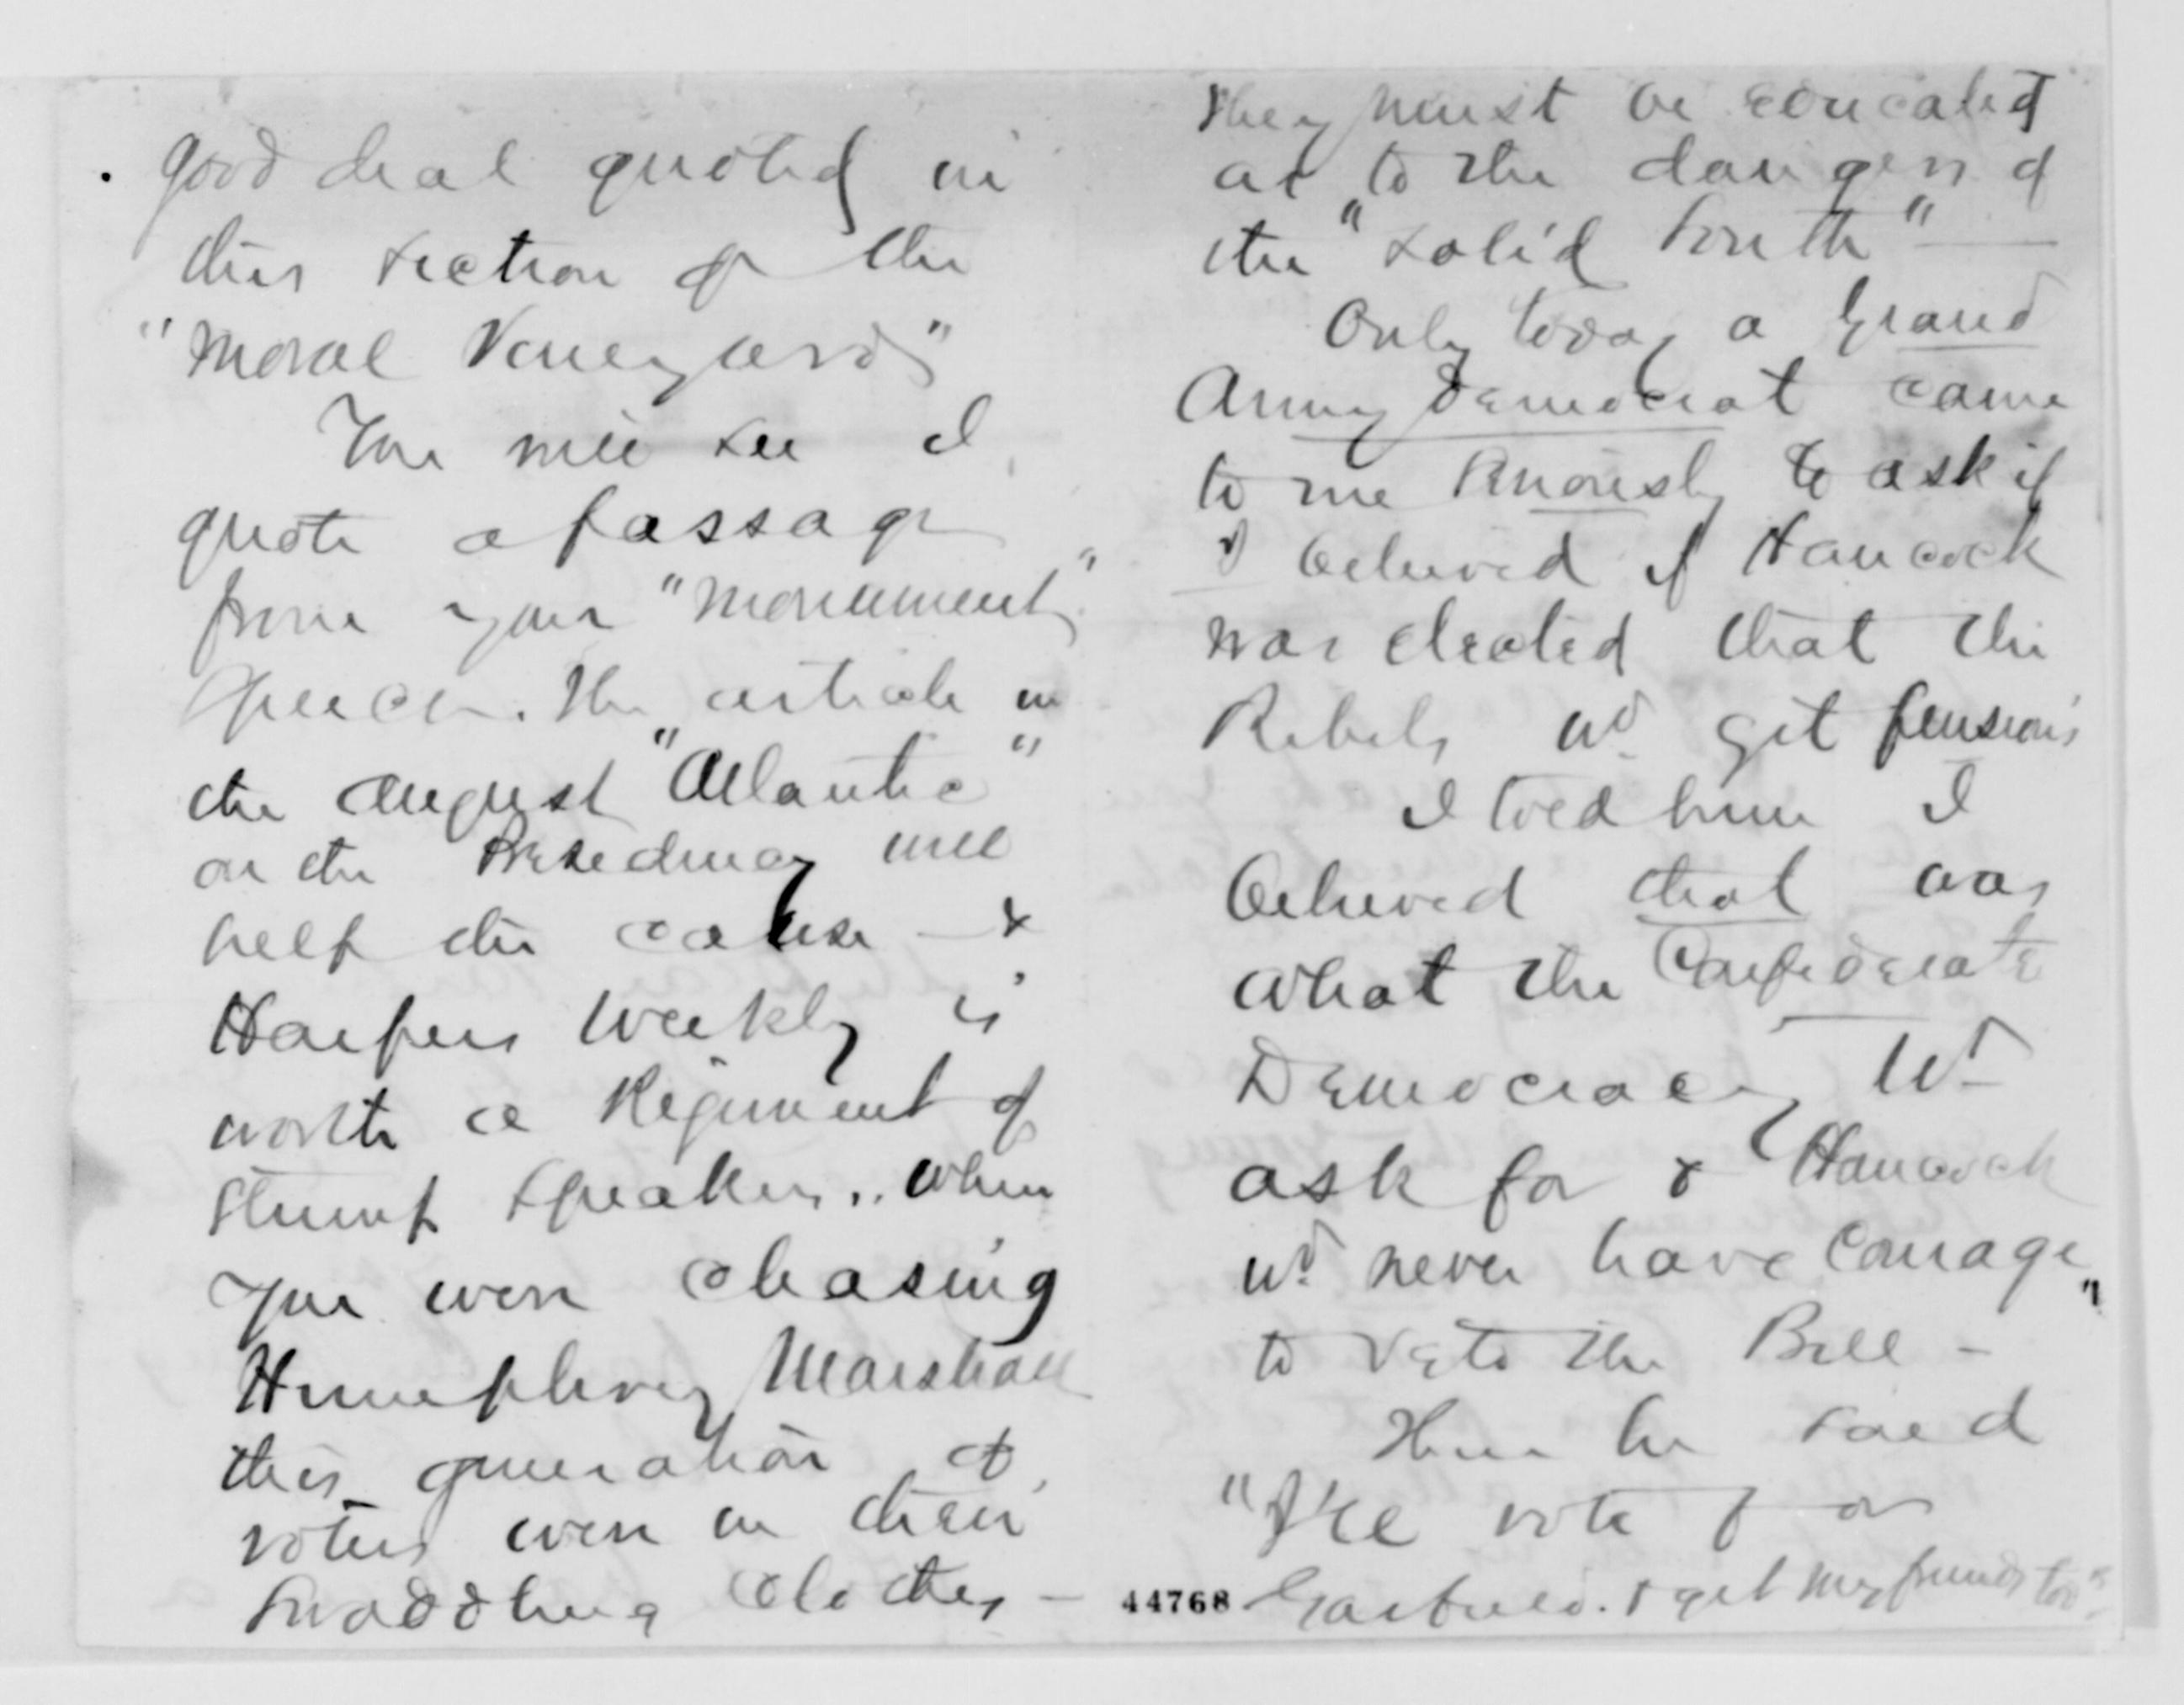 good deal quoted in
this section of the
"Moral Vineyard"
You will see I
quote a passage
from your "Monument"
Speech. The article in
the August "Atlantic"
on the Presedency will
help the cause — &
Harpers Weekly is
worth a Regiment of
Stump Speakers.. When
you were chasing
Humphrey Marshall
this generation of
voters were in their
Swaddling Clothes —
They must be educated
as to the dangers of
the "Solid South" —
Only today a Grand
Army Democrat came
to me to ask if
I believed if Hancock
was elected that the
Rebels wd get pensions
I told him I
believed that was
what the Confederate
Democracy wd
ask for & Hancock
wd never have courage
to veto the Bill -
Then he said
"I'll vote for
Garfield. & get my friends too"
44768